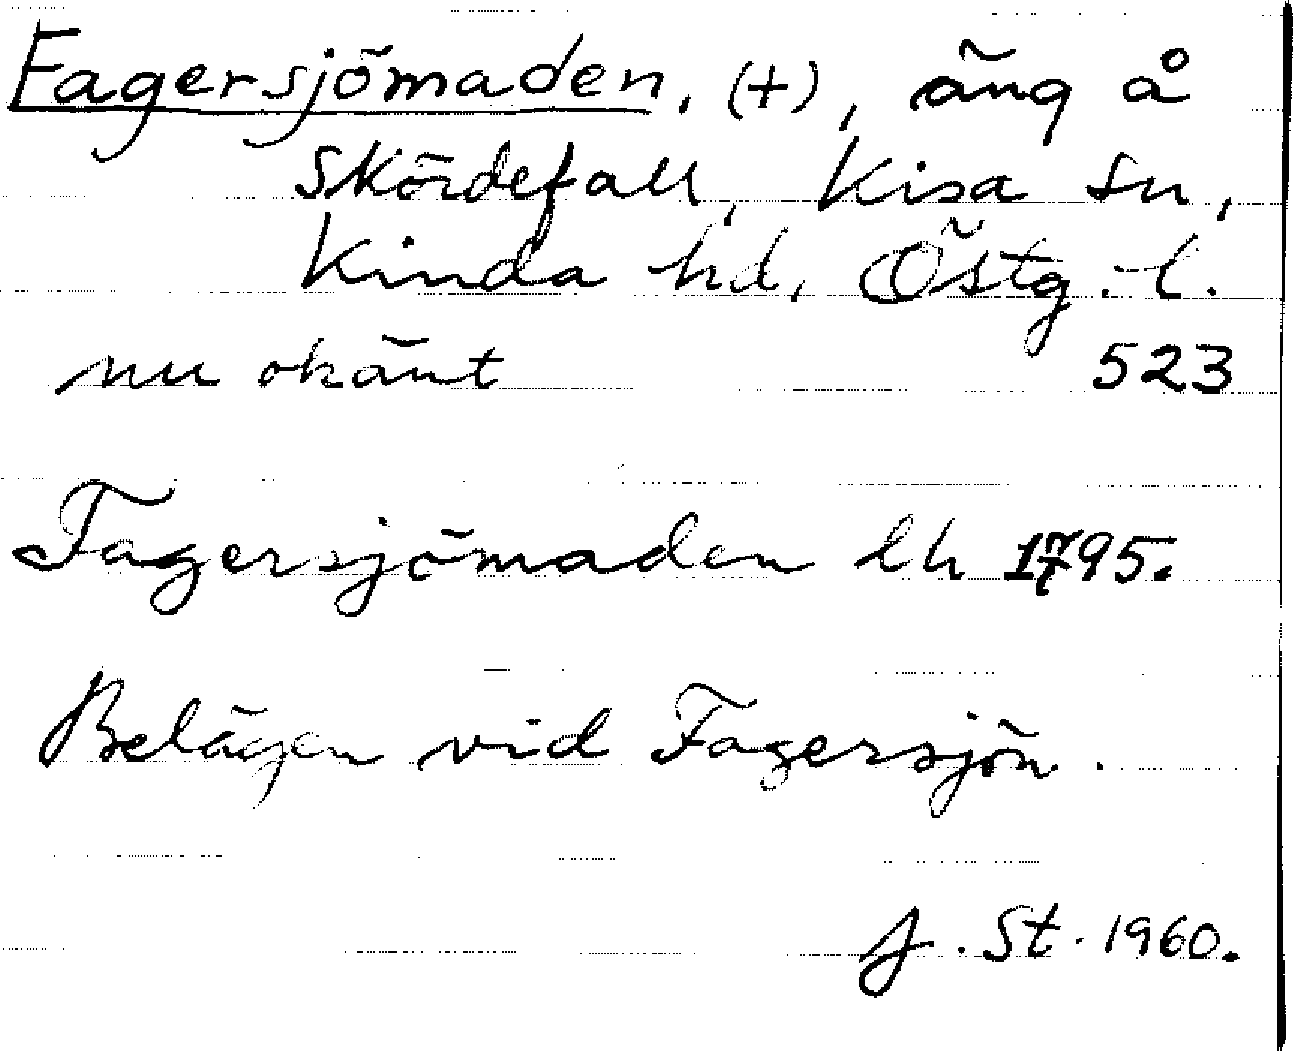 Fagersjömaden, (+), äng å
Skördefall, Kisa sn,
Kinda hd, Östg. l.
nu okänt 523
Fagersjömaden lh 1795.
Belägen vid Fagersjön.
J. St. 1960.